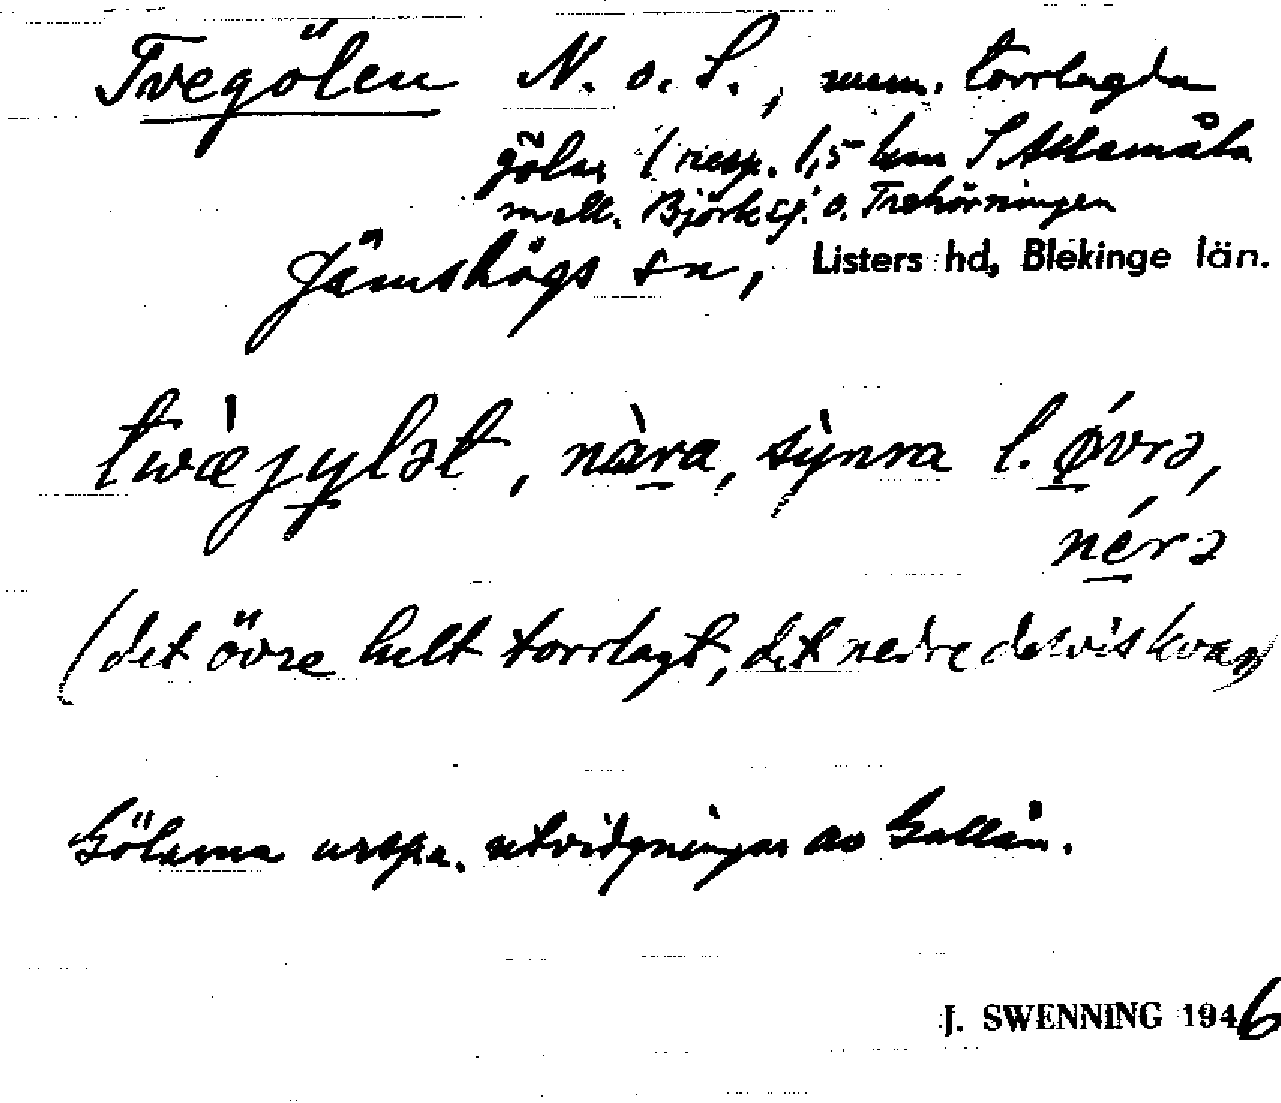 Tvegölen N. o. S., num. torrlagda
gölar 1 resp. 1,5 km S Aklemåla
mell. Björksj. o. Trehörningen
Jämshögs sn, Listers hd, Blekinge län.
twæ̀jylət, nàra, sỳnra l. øvrə,
nérə
(det övre helt torrlagt, det nedre delvis kvar)
Gölarna urspr. utvidgningar av Gallån.
J. SWENNING 1946